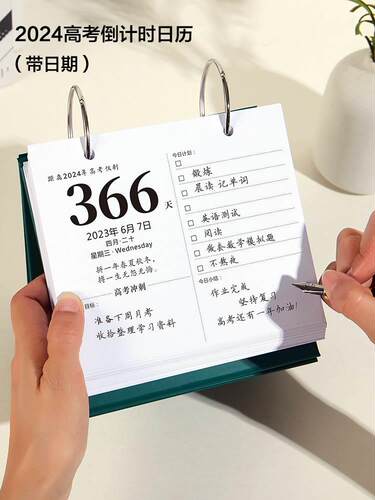 2024高考倒计时日历
（带日期）
距离2024年高考仅剩
366天
2023年6月7日
四月·二十
星期三·Wednesday
拼一年春夏秋冬，
搏一生无怨无悔。
高考冲刺
目标：
准备下周月考
收拾整理学习资料
今日计划：
锻炼
晨读 记单词
英语测试
阅读
做套数学模拟题
不熬夜
今日小结：
作业完成
坚持复习
高考还有一年加油！